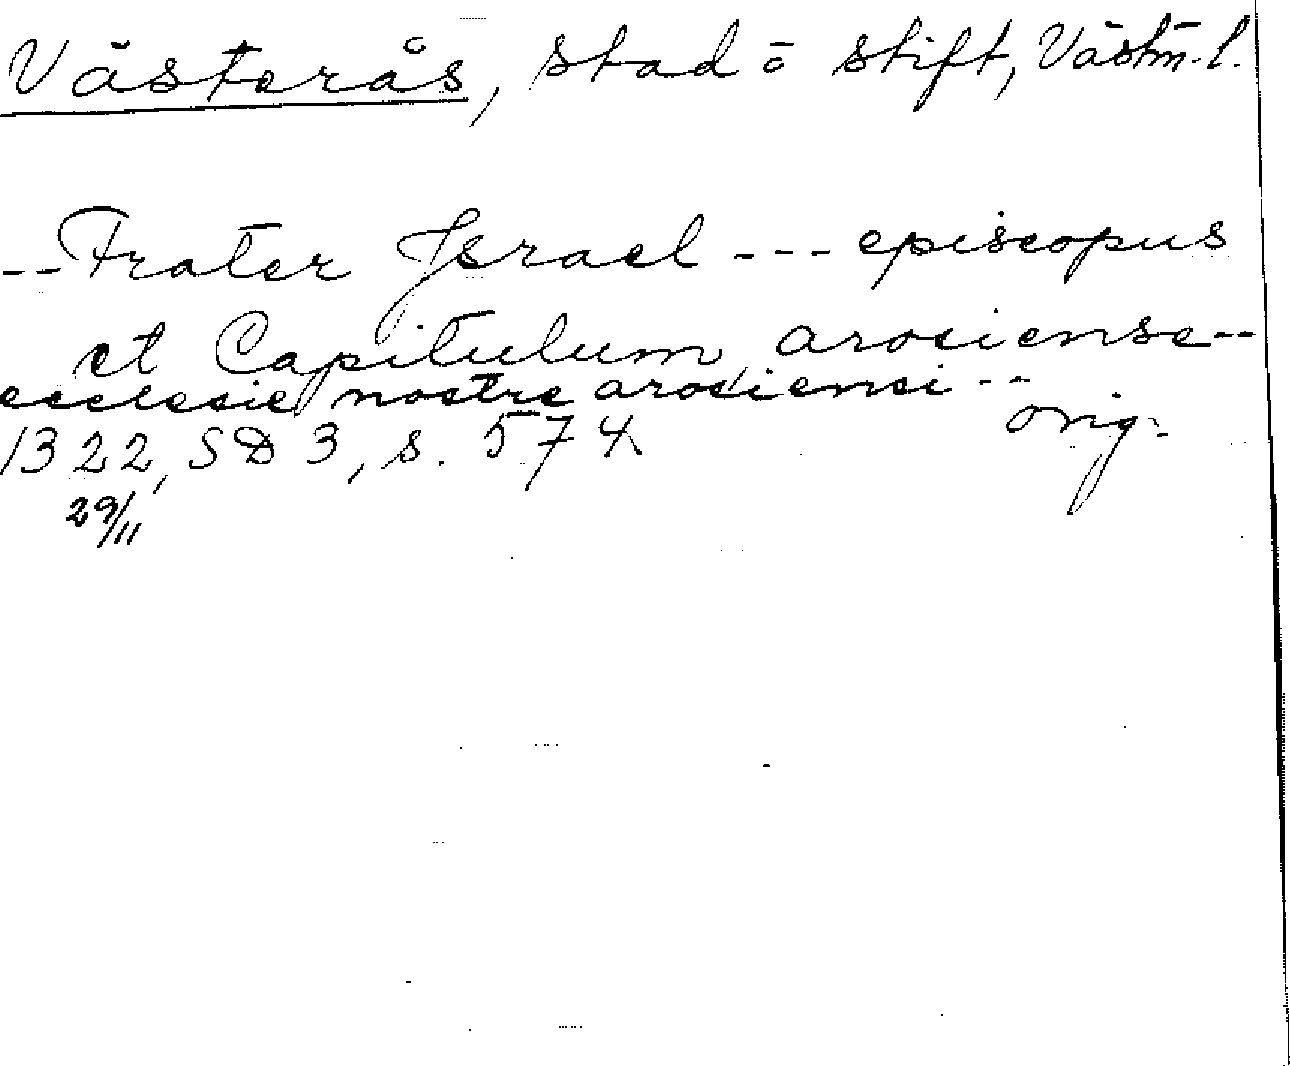 Västerås, stad o stift, Västm. l.
-- Frater Israel --- episcopus
et Capitulum arosiense --
ecclesie nostre arosiensi --
1322, SD 3, s. 574 orig.
29/11